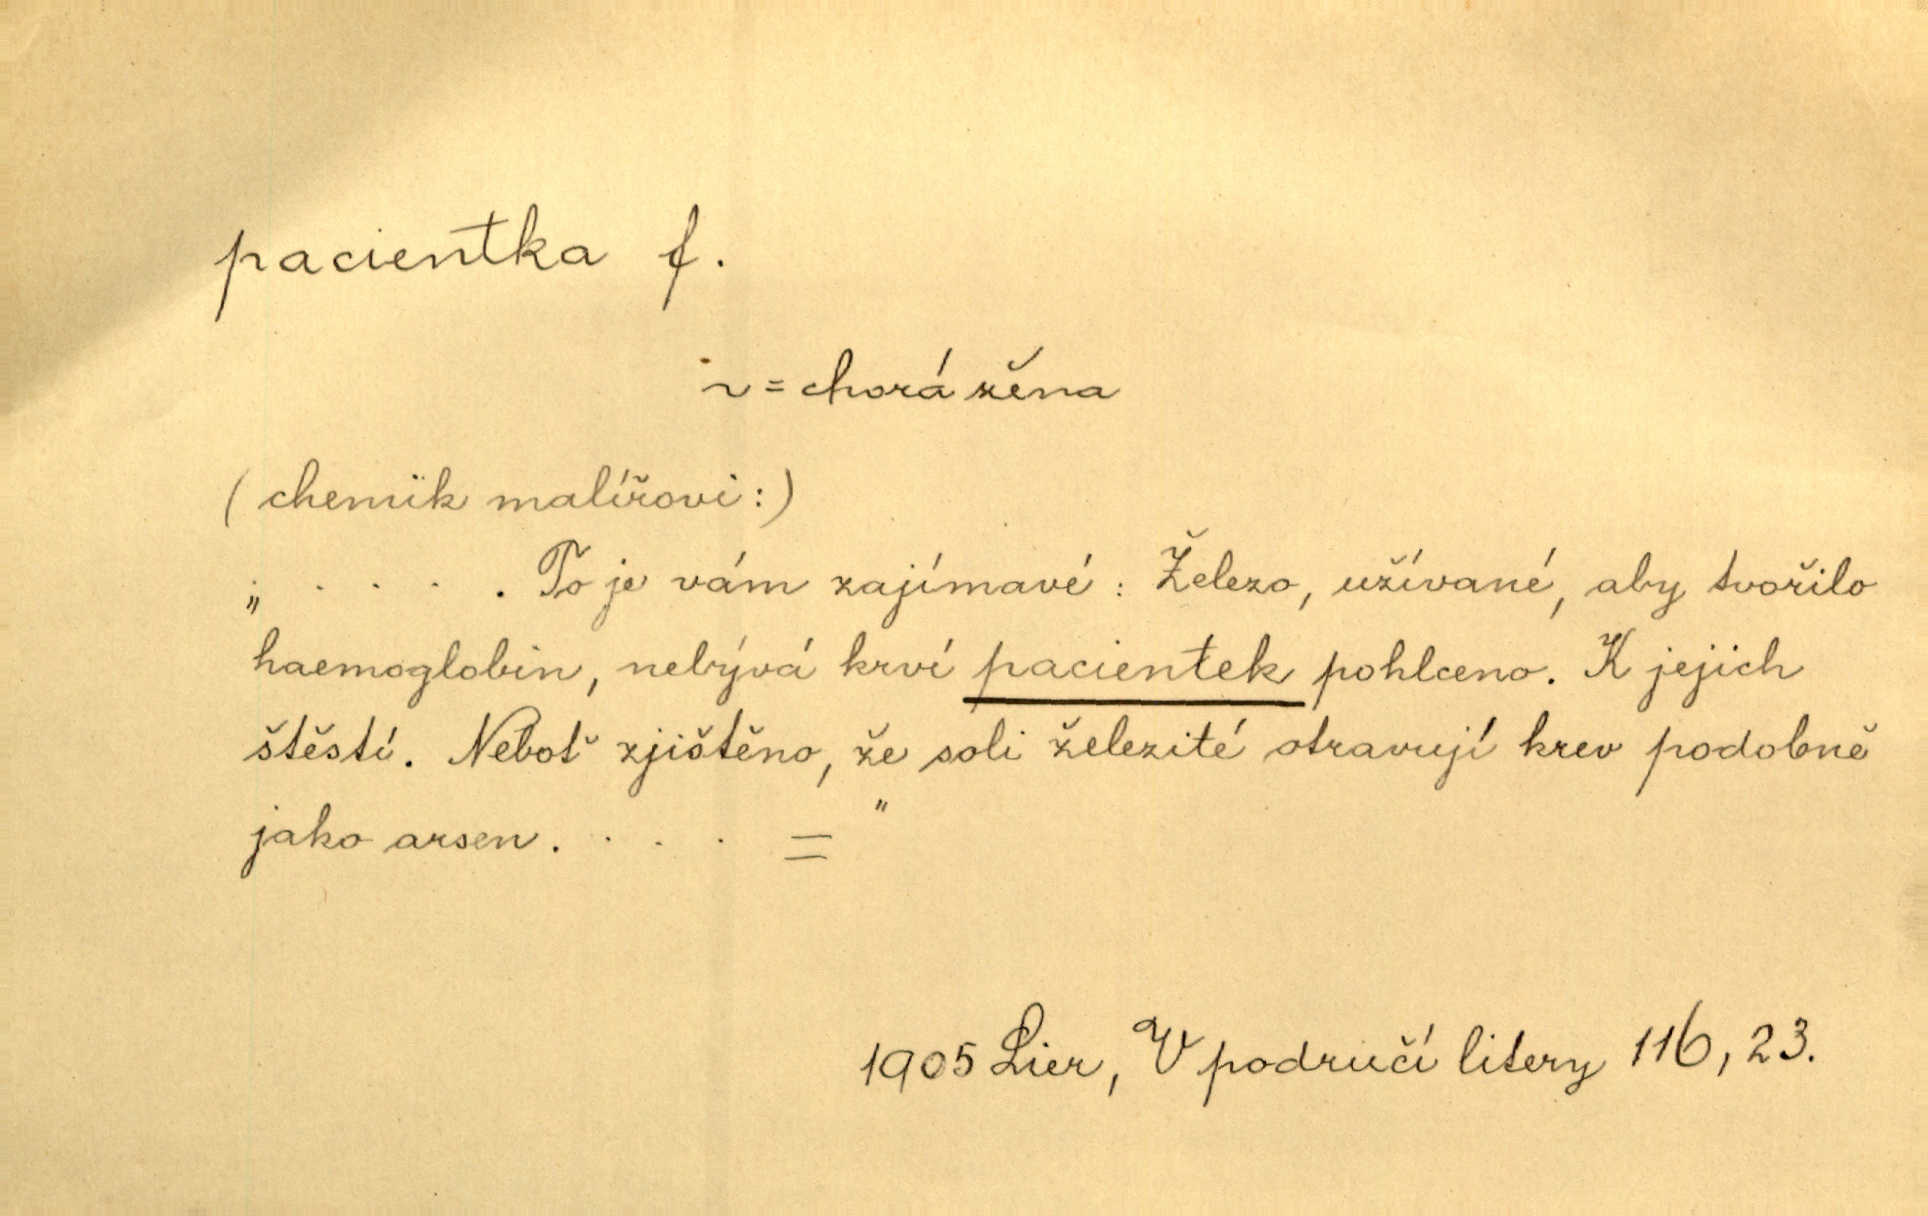 pacientka f.
~ = chorá žena
(chemik malířovi:)
„ . . . . . To je vám zajímavé: Železo, užívané, aby tvořilo
haemoglobin, nebývá krví pacientek pohlceno. K jejich
štěstí. Neboť zjištěno, že soli železité otravují krev podobně
jako arsen. . . . = "
1905 Lier, V područí litery 116, 23.